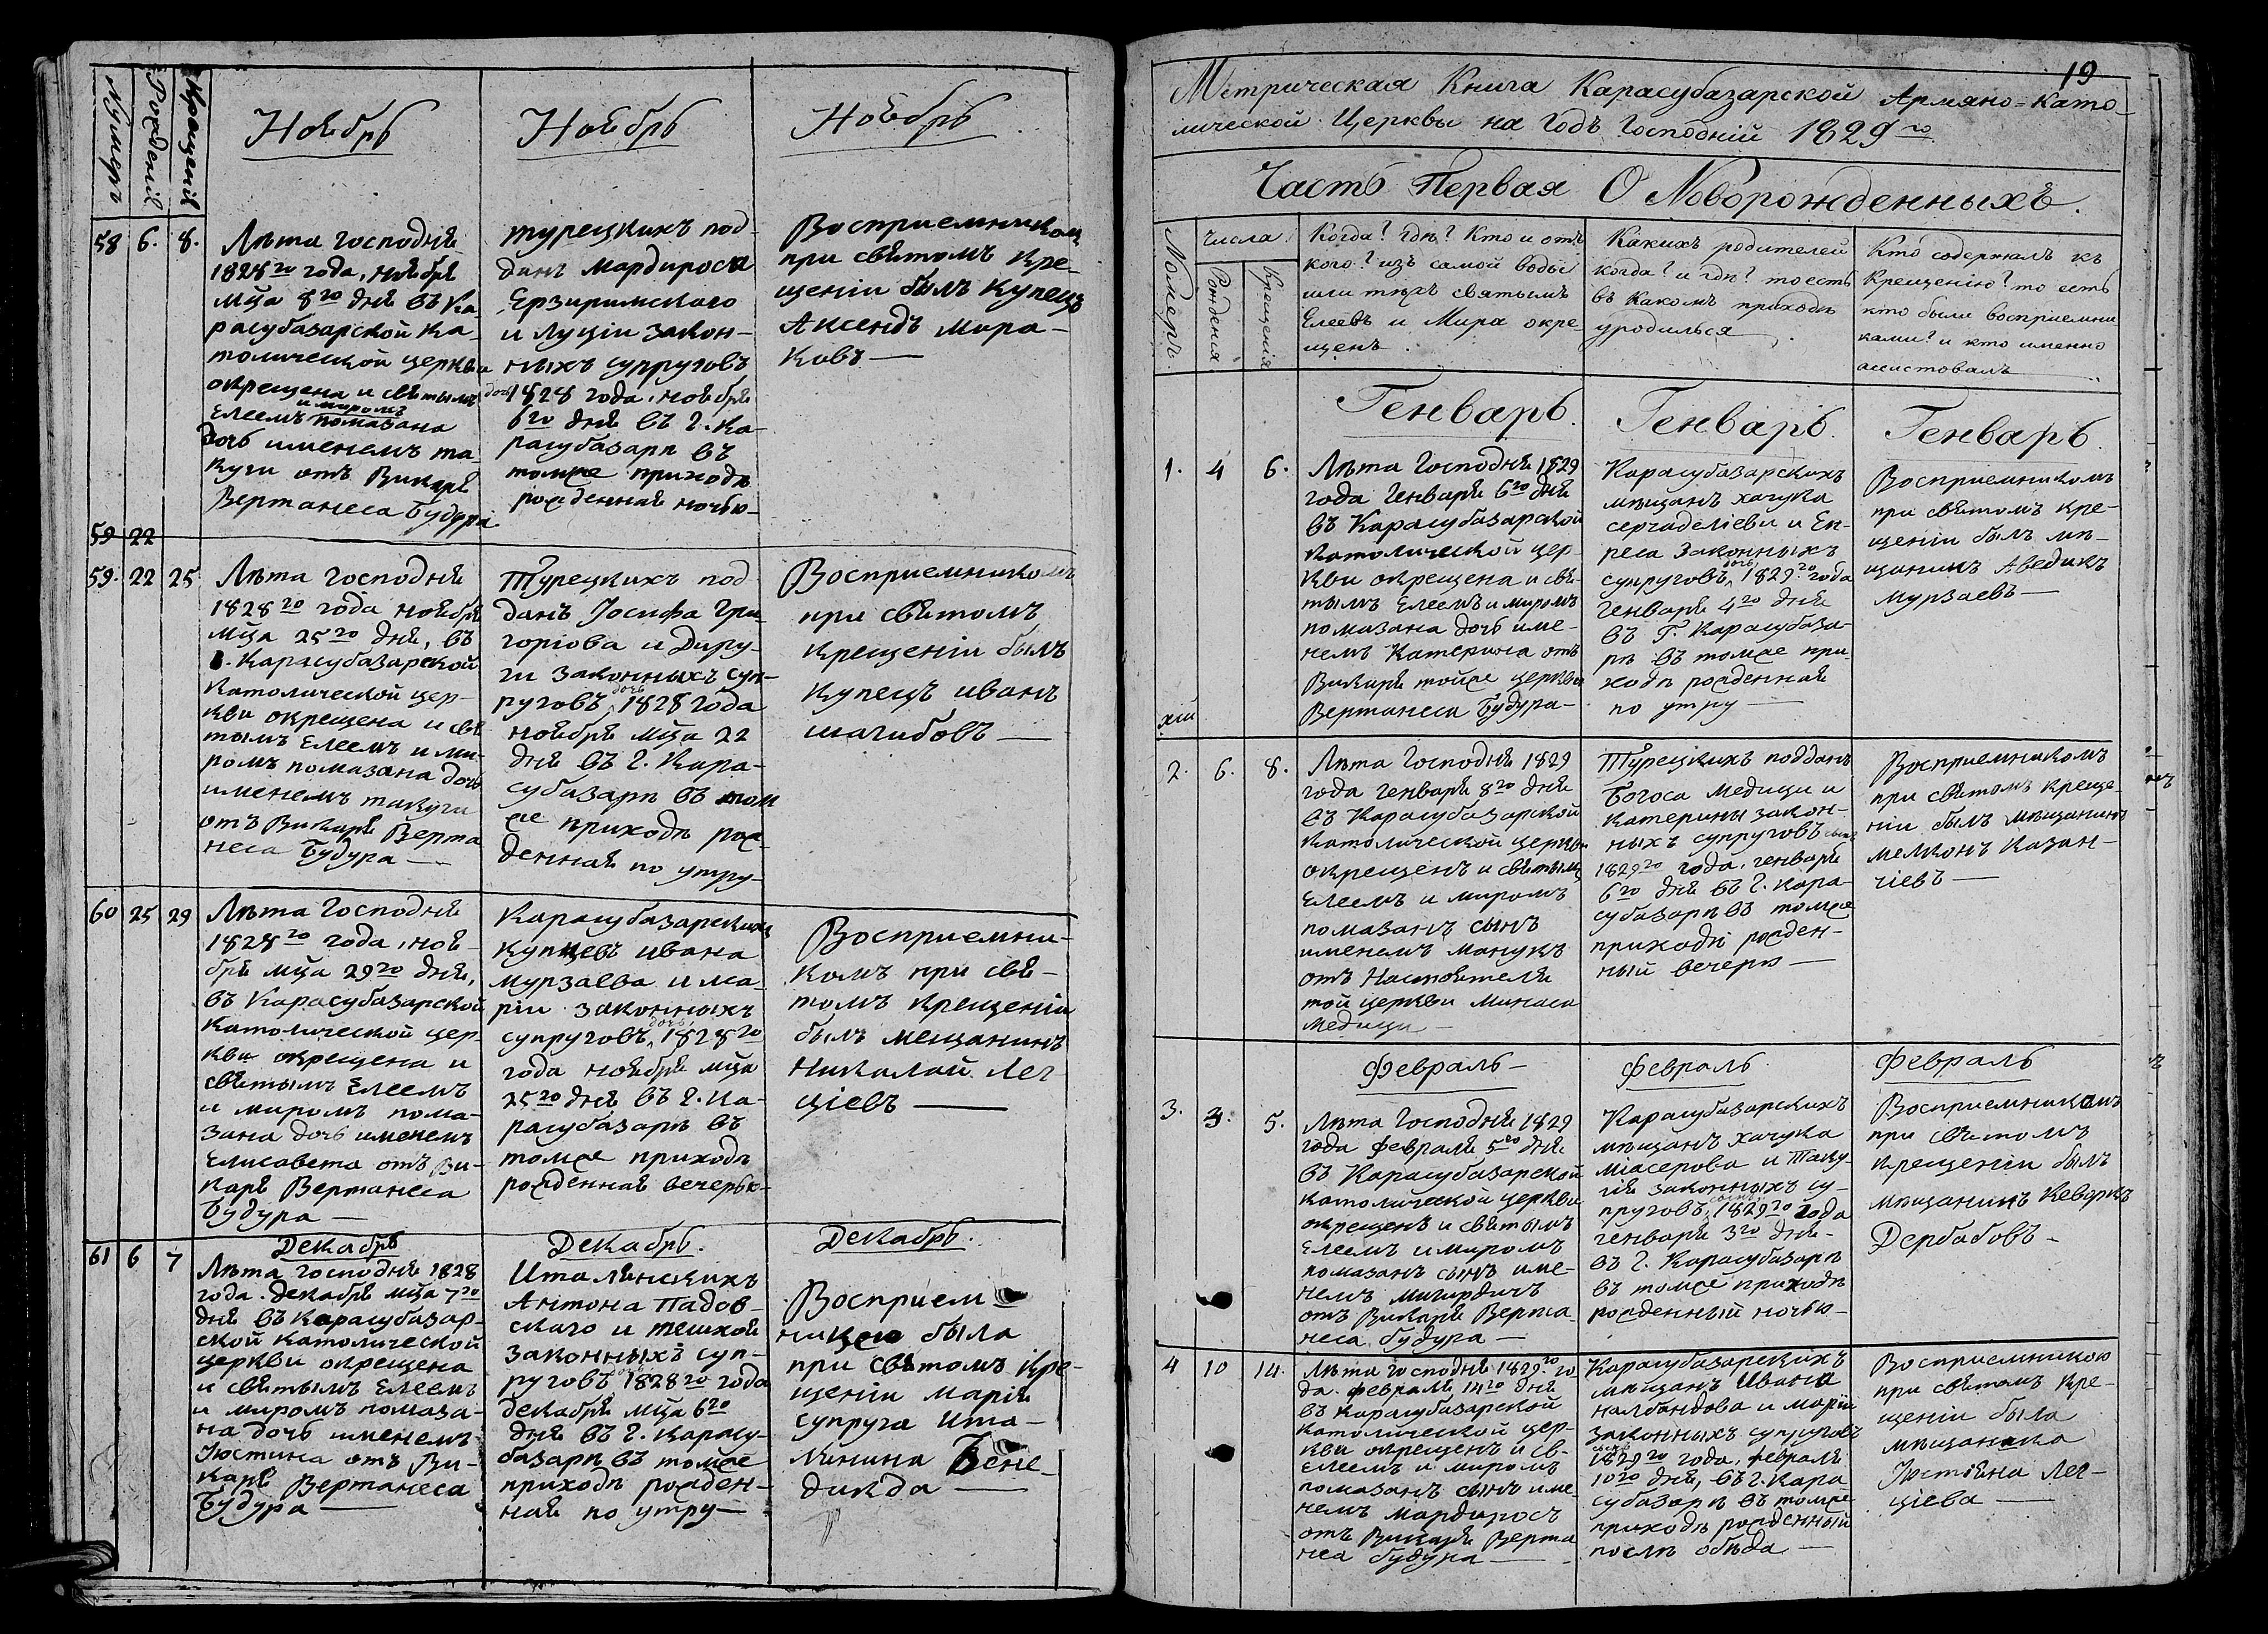 Нумеръ
Рожденій
Крещеній
Ноябрь
Ноябрь
Ноябрь
58 6. 8.
Лѣта Господня
1828го года, ноября
мца 8го дня въ Ка-
расубазарской Ка-
толической церкви
окрещена и святымъ
Елеемъ и миромъ помазана
дочь именемъ та-
куги отъ Викаря
Вертанеса Будура
турецкихъ под-
данъ Мардироса
Ерзиримского
и Луціи закон-
ныхъ супруговъ
дочь 1828 года, ноября
6го дня въ г. Ка-
расубазарѣ въ
томже приходѣ
рожденная ночью-
Восприемникомъ
при святомъ кре-
щеніи былъ купецъ
Аксендъ Мура-
ковъ —
59 22
59. 22 25
Лѣта Господня
1828го года ноября
мца 25го дня, въ
Карасубазарской
Католической цер-
кви окрещена и свя
тымъ Елеемъ и ми-
ромъ помазана дочь
именемъ такуги
отъ Викаря Верта
неса Будура —
Турецкихъ под
данъ Іосифа Гри-
горіова и Диру-
ги законныхъ суп-
руговъ дочь 1828 года
ноября мца 22
дня въ г. Кара-
субазарѣ въ том
же приходѣ рож-
денная по утру-
Восприемникомъ
при святомъ
крещеніи былъ
купецъ иванъ
шагибовъ —
60 25 29
Лѣта Господня
1828го года, ноя-
бря мца 29го дня,
въ Карасубазарской
Католической цер-
кви окрещена и
святымъ Елеемъ
и миромъ пома-
зана дочь именемъ
Елисавета отъ Ви-
каря Вертанеса
Будура —
Карасубазарскихъ
купцевъ ивана
мурзаева и ма-
ріи законныхъ
супруговъ, дочь 1828го
года ноября мца
25го дня въ г. Ка-
расубазарѣ въ
томже приходѣ
рожденная вечерью-
Восприемни-
комъ при свя-
томъ крещеніи
былъ мещанинъ
Николай Лег
ціевъ —
61 6 7
Декабрь
Декабрь.
Декабрь.
Лѣта господня 1828
года. декабря мца 7го
дня въ Карасубазар-
ской католической
церкви окрещена
и святымъ Елеемъ
и миромъ помаза-
на дочь именемъ
Іюстина отъ Ви-
каря Вертанеса
Будура —
Италянскихъ
Антона Падов-
скаго и тешкои
законныхъ суп-
руговъ дочь 1828го года
декабря мца 6го
дня въ г. карасу-
базарѣ въ томже
приходѣ рожден-
ная по утру —
Восприем
ницею была
при святомъ кре-
щеніи Марія
супруга Ита-
линина Бене-
дикда —
19
Метрическая Книга Карасубазарской Армяно-Като
лической Церквы на годъ Господній 1829го
Часть Первая О Новорожденныхъ.
Номеръ
Числа
Рожденія
Крещенія
Когда? гдѣ? Кто и отъ
кого? изъ самой воды
или тѣхъ святымъ
Елеевъ и Мира окре-
щенъ.
Какихъ родителей
когда? и гдѣ? то есть
въ какомъ приходѣ
уродилься
Кто содержалъ къ
Крещенію? то есть
кто были восприемни
ками? и кто именно
асистовалъ
Генварь.
Генварь.
Генварь.
1. 4 6.
Лѣта Господня 1829
года Генваря 6го дня
въ Карасубазарской
католической цер-
кви окрещена и свя-
тымъ Елеемъ и миромъ
помазана дочь име-
немъ Катерина отъ
Викаря тойже церкви
Вертанеса Будура-
Карасубазарскихъ
мѣщанъ хачука
серчаделіеви и Еп-
реса законныхъ
супруговъ, дочь 1829го года
генваря 4го дня
въ Г. Карасубаза-
рѣ въ томже при-
ходѣ рожденная
по утру —
Восприемникомъ
при святомъ кре-
щеніи былъ мѣ-
щанинъ Аведикъ
мурзаевъ —
2. 6. 8.
Лѣта Господня 1829
года генваря 8го дня
въ Карасубазарской
католической церкви
окрещенъ и святымъ
Елеемъ и миромъ
помазанъ сынъ
именемъ Манукъ
отъ Настоятеля
той церкви Минаса
Медици —
Турецкихъ подданъ
Богоса Медици и
катерины закон-
ныхъ супруговъ сынъ
1829го года, генваря
6го дня въ г. Кара-
субазарѣ въ томже
приходѣ рожден-
ный вечерю —
Восприемникомъ
при святомъ креще-
ніи былъ мѣщанинъ
мелконъ Казан-
чіевъ —
Февраль —
Февраль.
Февраль
3. 3. 5.
Лѣта Господня 1829
года февраля 5го дня
въ Карасубазарской
католической церкви
окрещенъ и святымъ
Елеемъ и миромъ
помазанъ сынъ име-
немъ мигирдичъ
отъ Викаря Верта
неса будура —
Карасубазарскихъ
мѣщанъ хачука
міасерова и Таку-
гія законныхъ су-
пруговъ, сынъ 1829го года
генваря 3го дня-
въ г. Карасубазарѣ
въ томже приходѣ
рожденный ночью-
Восприемникомъ
при святомъ
крещеніи былъ
мѣщанинъ Кеворкъ
Дербабовъ -
4 10 14.
Лѣта господня 1829го го
да. февраля 14го дня
въ карасубазарской
католической цер-
кви окрещенъ и св-
Елеемъ и миромъ
помазанъ сынъ име-
немъ мардиросъ
отъ Викаря Верта
неса будура —
Карасубазарскихъ
мѣщанъ Ивана
налбандова и маріи
законныхъ супруговъ
сынъ 1829го года, февраля
10го дня, въ г. Кара
субазарѣ въ томже
приходѣ рожденный
послѣ обѣда —
Восприемникою
при святомъ кре-
щеніи была
мѣщанка
Іюстіяна Лег-
ціева —